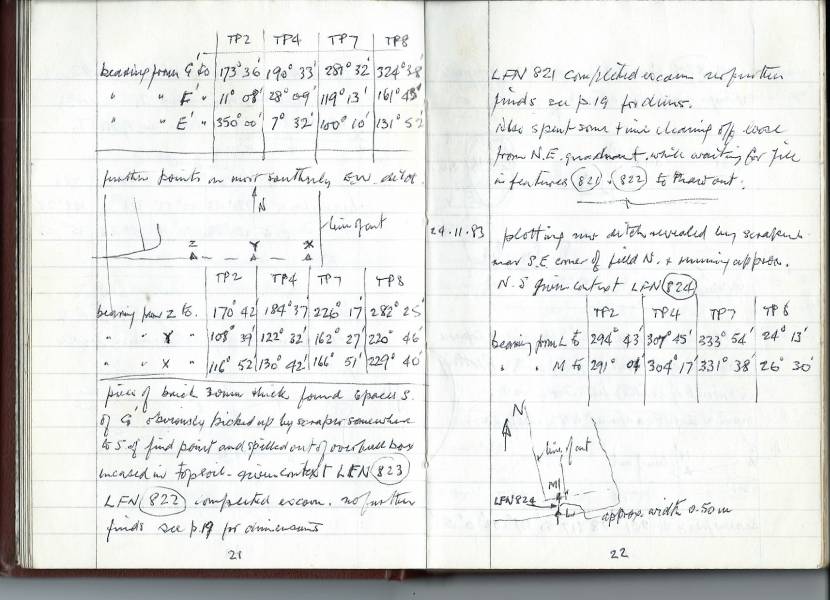 TP2 TP4 TP7 TP8
bearing from G' to 173° 36' 190° 33' 281° 32' 324° 38'
" " F' " 11° 08' 28° 09' 119° 13' 161° 45'
" " E' " 350° 00' 7° 32' 100° 10' 131° 52'
further points on most southerly E.W. ditch.
N
line of cut
Z Y X
TP2 TP4 TP7 TP8
bearing from Z to. 170° 42' 184° 37' 226° 17' 282° 25'
" " Y " 108° 39' 122° 32' 162° 27' 220° 46'
" " X " 116° 52' 130° 42' 166° 51' 229° 40'
piece of brick 30mm thick found 6 paces S.
of G' obviously picked up by scraper somewhere
to S of find point and spilled out of overfull box
incased in topsoil - given context LFN 823
LFN 822 completed excavn. no further
finds see p.19 for dimensions
21
LFN 821 completed excavn no further
finds see p.19 for dims.
Also spent some time cleaning off loose
from N.E. quadrant, while waiting for fill
in features 821, 822 to thaw out.
24.11.83 plotting new ditch revealed by scrapers
near S.E corner of field N. & running approx.
N.S given context LFN 824
TP2 TP4 TP7 TP8
bearing from L to 294° 43' 307° 45' 333° 54' 24° 13'
" " M to 291° 04' 304° 17' 331° 38' 26° 30'
N
line of cut
M
LFN 824
L
approx. width 0.50m
22